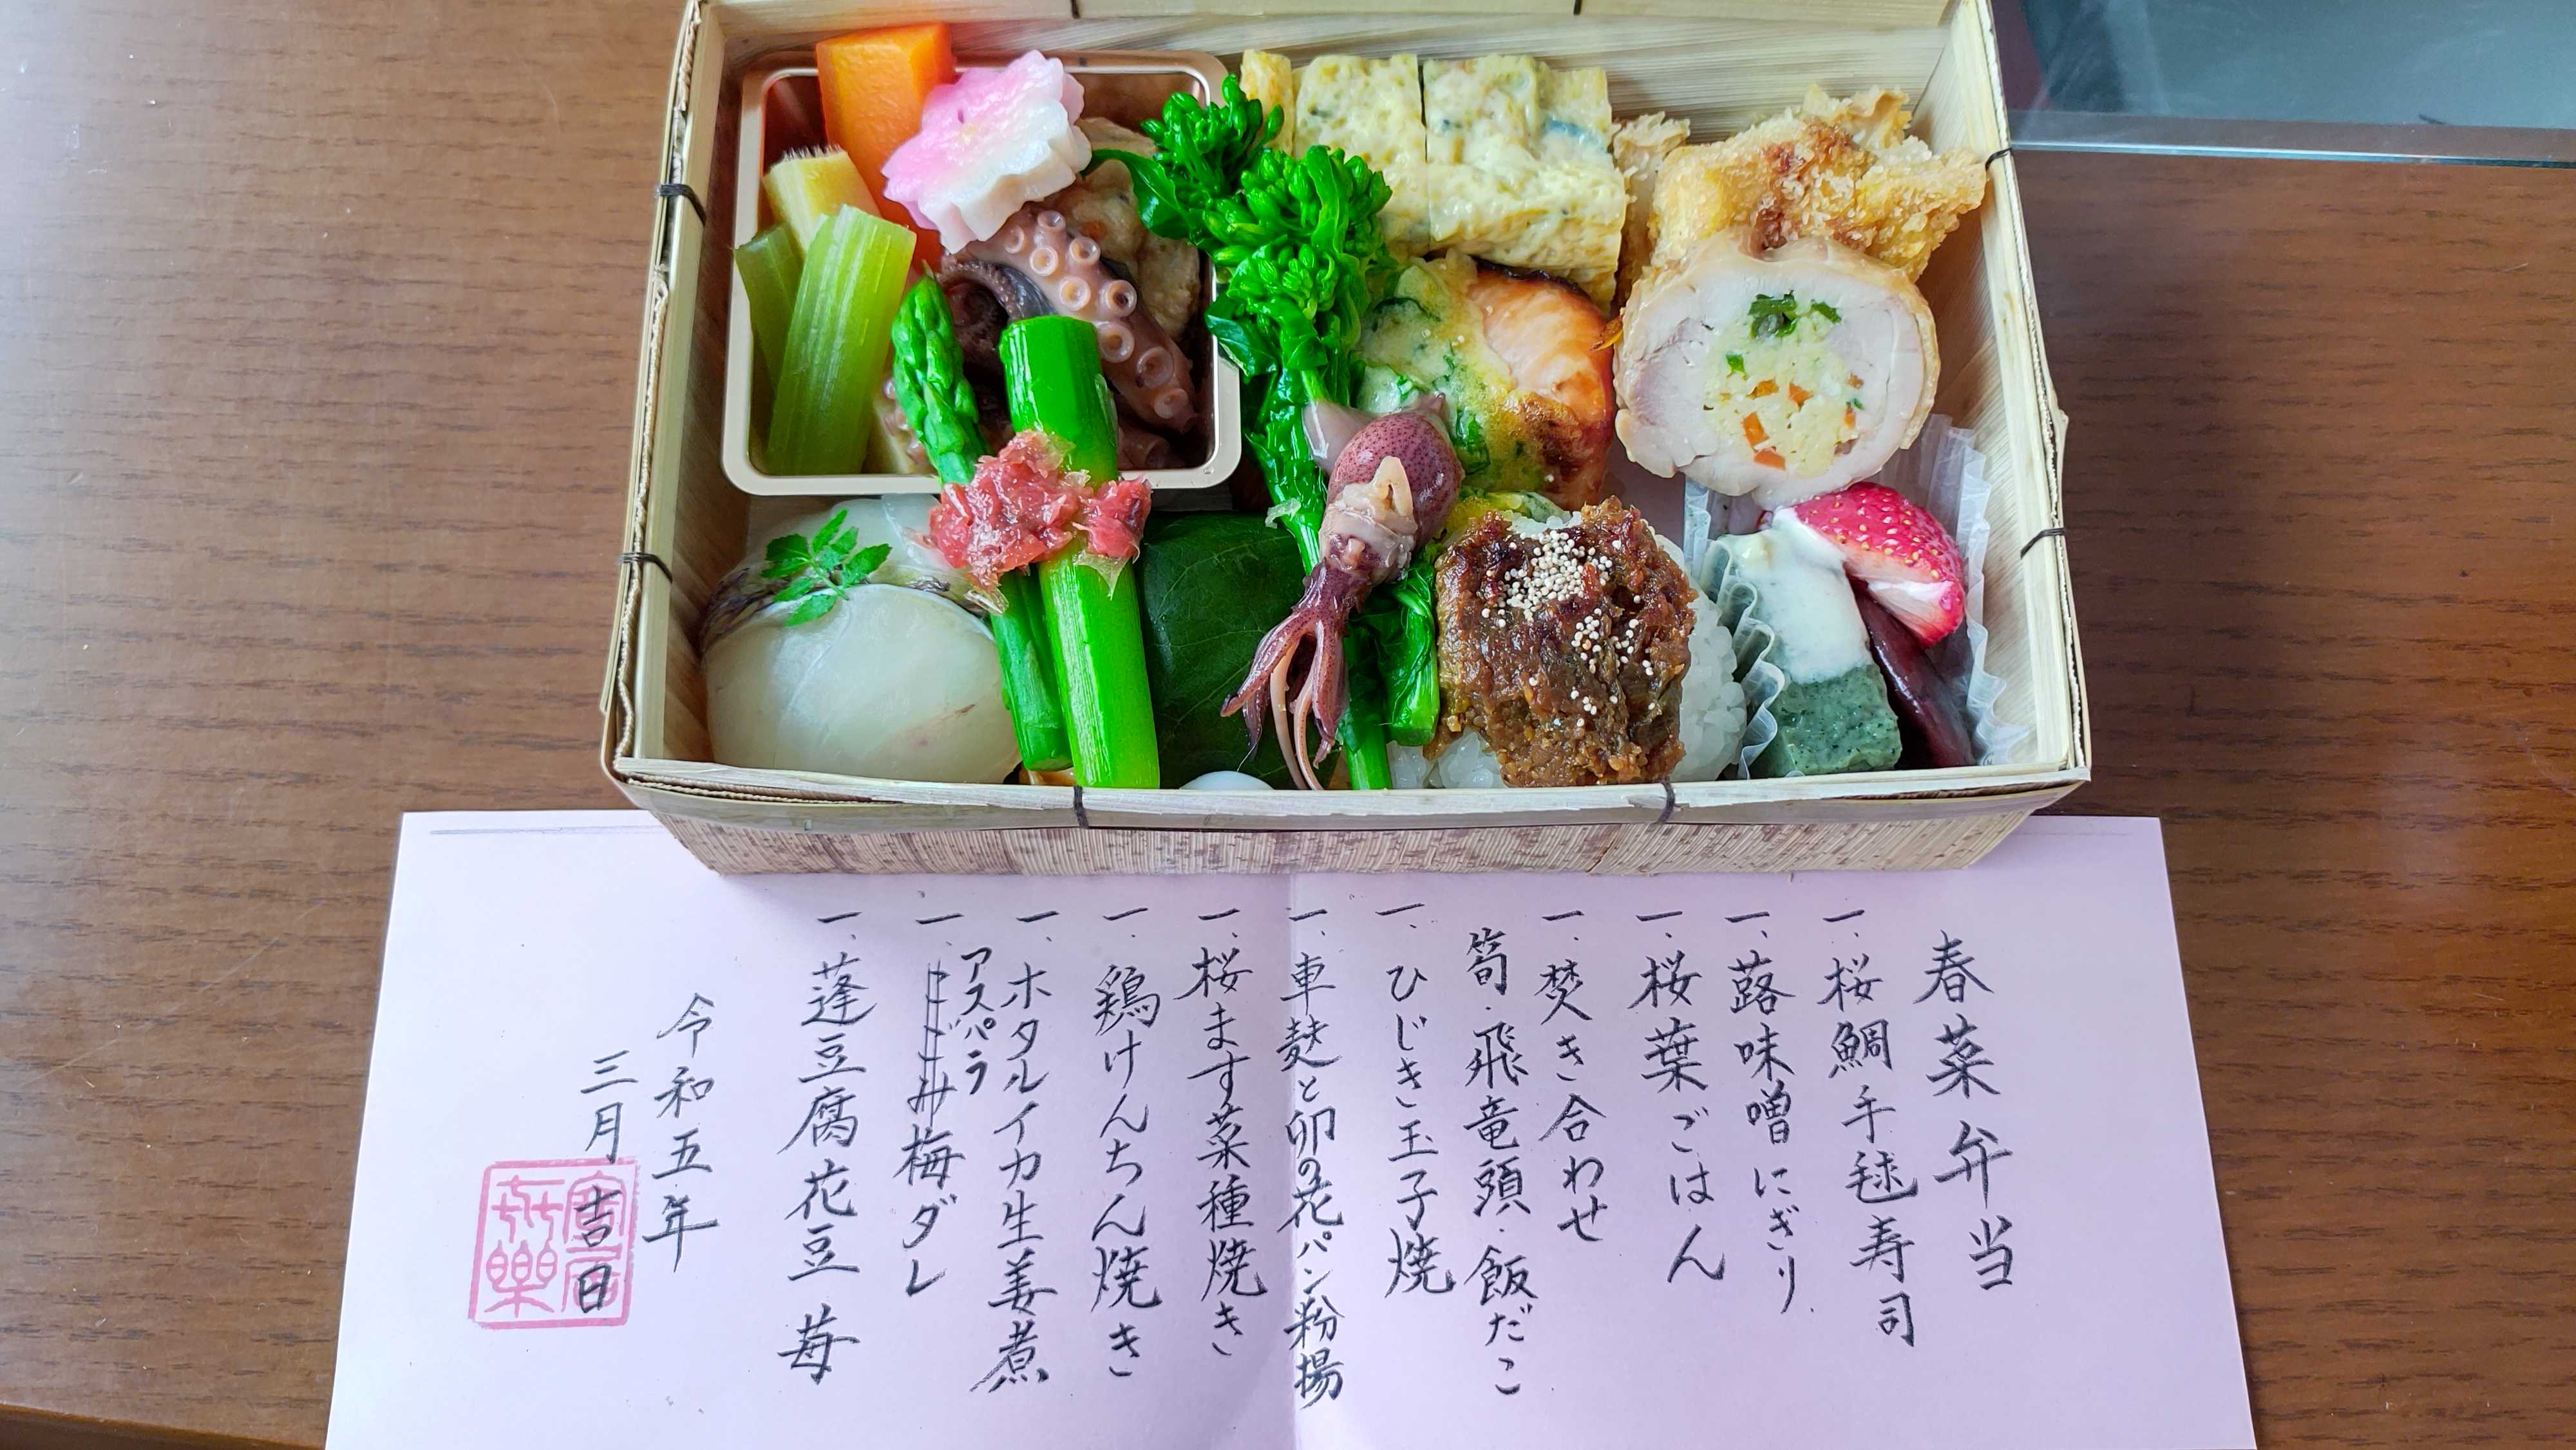 春菜弁当
一、桜鯛手毬寿司
一、蕗味噌にぎり
一、桜葉ごはん
一、焚き合わせ
筍・飛竜頭・飯だこ
一、ひじき玉子焼
一、車麸と卯の花パン粉揚
一、桜ます菜種焼き
一、鶏けんちん焼き
一、ホタルイカ生姜煮
アスパラ
一、こごみ梅ダレ
一、蓬豆腐花豆苺
令和五年
三月吉日